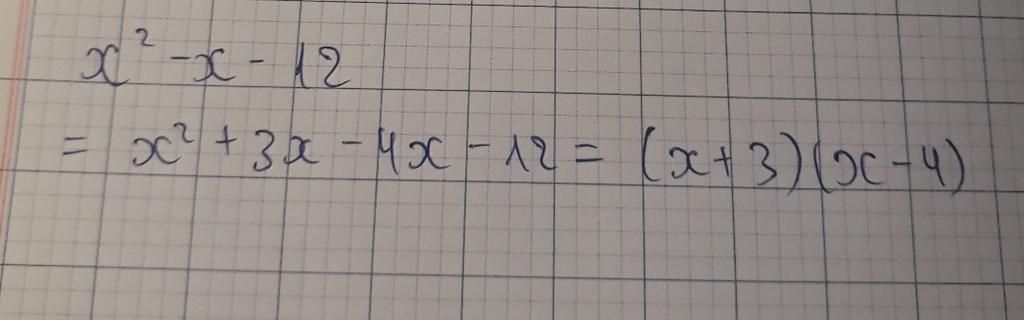 x² - x - 12
= x² + 3x - 4x - 12 = (x + 3)(x - 4)